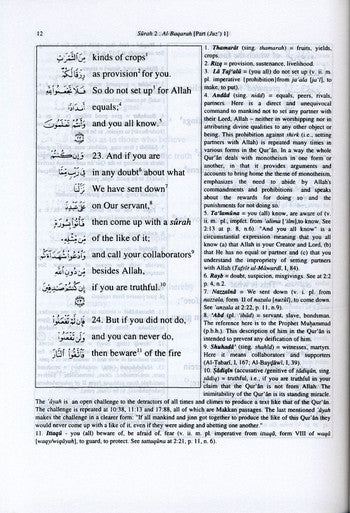 12 Sûrah 2 : Al-Baqarah [Part (Juz') 1]
مِنَ ٱلثَّمَرَٰتِ kinds of crops¹
رِزْقًا لَّكُمْ as provision² for you.
فَلَا تَجْعَلُوا۟ لِلَّهِ So do not set up³ for Allah
أَندَادًا equals;⁴
وَأَنتُمْ تَعْلَمُونَ and you all know.⁵
وَإِن كُنتُمْ 23. And if you are
فِى رَيْبٍ مِّمَّا in any doubt⁶ about what
نَزَّلْنَا We have sent down⁷
عَلَىٰ عَبْدِنَا on Our servant,⁸
فَأْتُوا۟ بِسُورَةٍ then come up with a sûrah
مِّن مِّثْلِهِۦ of the like of it;
وَٱدْعُوا۟ شُهَدَآءَكُم and call your collaborators⁹
مِّن دُونِ ٱللَّهِ besides Allah,
إِن كُنتُمْ صَٰدِقِينَ if you are truthful.¹⁰
فَإِن لَّمْ تَفْعَلُوا۟ 24. But if you did not do,
وَلَن تَفْعَلُوا۟ and you can never do,
فَٱتَّقُوا۟ ٱلنَّارَ then beware¹¹ of the fire
1. Thamarât (sing. thamarah) = fruits, yields,
crops.
2. Rizq = provision, sustenance, livelihood.
3. Lâ Taj'alû = (you all) do not set up (v. ii. m.
pl. imperative [prohibition] from ja'ala [ja'l], to
make, to put).
4. Andâd (sing. nidd) = equals, peers, rivals,
partners. Here is a direct and unequivocal
command to mankind not to set any partner with
their Lord, Allah – neither in worshipping nor in
attributing divine qualities to any other object or
being. This prohibition against shirk (i.e., setting
partners with Allah) is repeated many times in
various forms in the Qur'ân. In a way the whole
Qur'ân deals with monotheism in one form or
another, in that it provides arguments and
accounts to bring home the theme of monotheism,
emphasizes the need to abide by Allah's
commandments and prohibitions and speaks
about the rewards for doing so and the
punishments for not doing so.
5. Ta'lamûna = you (all) know, are aware of (v.
ii. m. pl., impfct. from 'alima ['ilm], to know. See
2:13 at p. 8, n.6). "And you all know" is a
circumstantial expression meaning that you all
know (a) that Allah is your Creator and Lord, (b)
that He has no equal or partner and (c) that you
understand the impropriety of setting partners
with Allah (Tafsîr al-Mâwardî, I, 84).
6. Rayb = doubt, suspicion, misgivings. See at 2:2
p. 4, n.2.
7. Nazzalnâ = We sent down (v. i. pl. from
nazzala, form II of nazala [nuzûl], to come down.
See 'anzala at 2:22, p. 11, n.9).
8. 'Abd (pl. 'ibâd) = servant, slave, bondsman.
The reference here is to the Prophet Muḥammad
(p.b.h.). This description of him in the Qur'ân is
intended to prevent any deification of him.
9. Shuhadâ' (sing. shahîd) = witnesses, martyrs.
Here it means collaborators and supporters
(Al-Ṭabarî, I, 167; Al-Bayḍâwî, I, 39).
10. Ṣâdiqîn (accusative /genitive of ṣâdiqûn, sing.
ṣâdiq) = truthful, i.e., if you are truthful in your
claim that the Qur'ân is not from Allah. The
inimitability of the Qur'ân is its standing miracle.
The 'âyah is an open challenge to the detractors of all times and climes to produce a text like that of the Qur'ân.
The challenge is repeated at 10:38, 11:13 and 17:88, all of which are Makkan passages. The last mentioned 'âyah
makes the challenge in a clearer form: "If all mankind and jinn got together to produce the like of this Qur'ân they
would never come up with a like of it, even if they were aiding and abetting one another."
11. Ittaqû - you (all) beware of, be afraid of, fear (v. ii. m. pl. imperative from ittaqâ, form VIII of waqâ
[waqy/wiqâyah], to guard, to protect. See tattaqûna at 2:21, p. 11, n. 6).